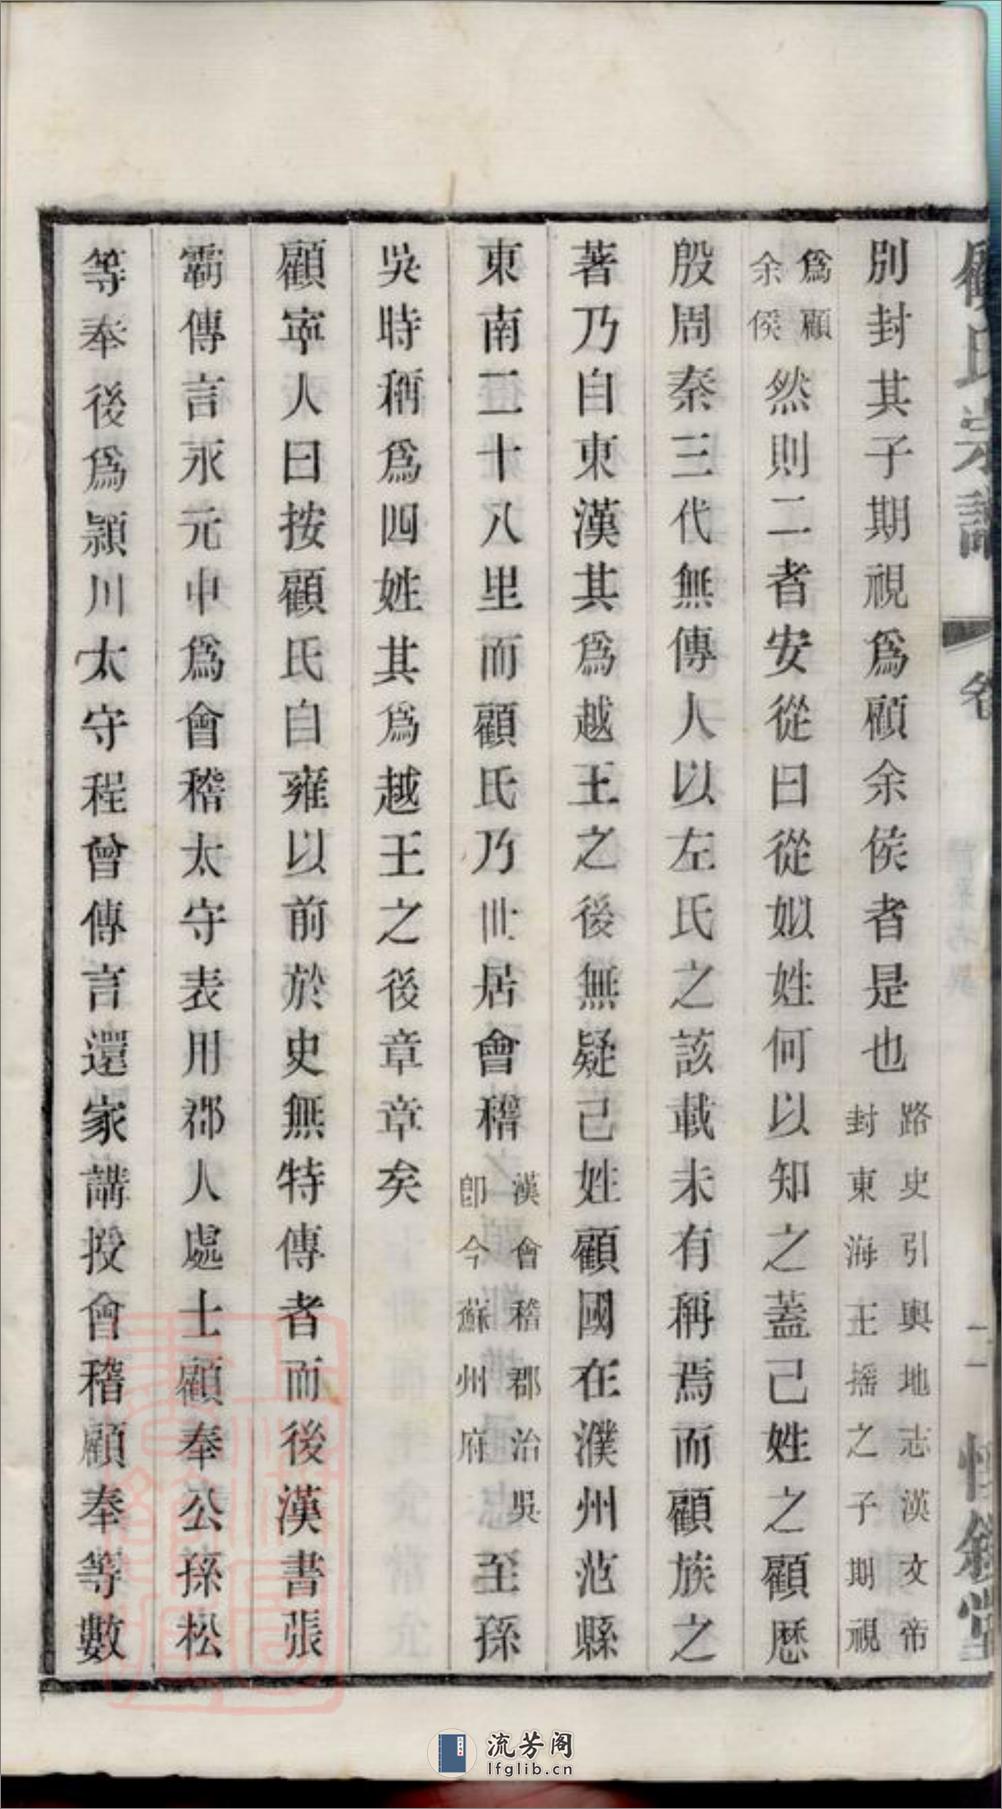 別封其子期視爲顧余侯者是也路史引輿地志漢文帝封東海王摇之子期視
爲顧余侯然則二者安從曰從姒姓何以知之蓋己姓之顧歷
殷周秦三代無傳人以左氏之該載未有稱焉而顧族之
著乃自東漢其爲越王之後無疑己姓顧國在濮州范縣
東南二十八里而顧氏乃世居會稽漢會稽郡治吳卽今蘇州府至孫
吳時稱爲四姓其爲越王之後章章矣
顧寧人曰按顧氏自雍以前於史無特傳者而後漢書張
霸傳言永元中爲會稽太守表用郡人處士顧奉公孫松
等奉後爲潁川太守程曾傳言還家講授會稽顧奉等數
氏宗譜
二
堂
流芳阁
lfglib.cn